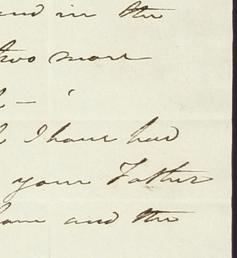 and in the
two more
I have had
your Father
and the